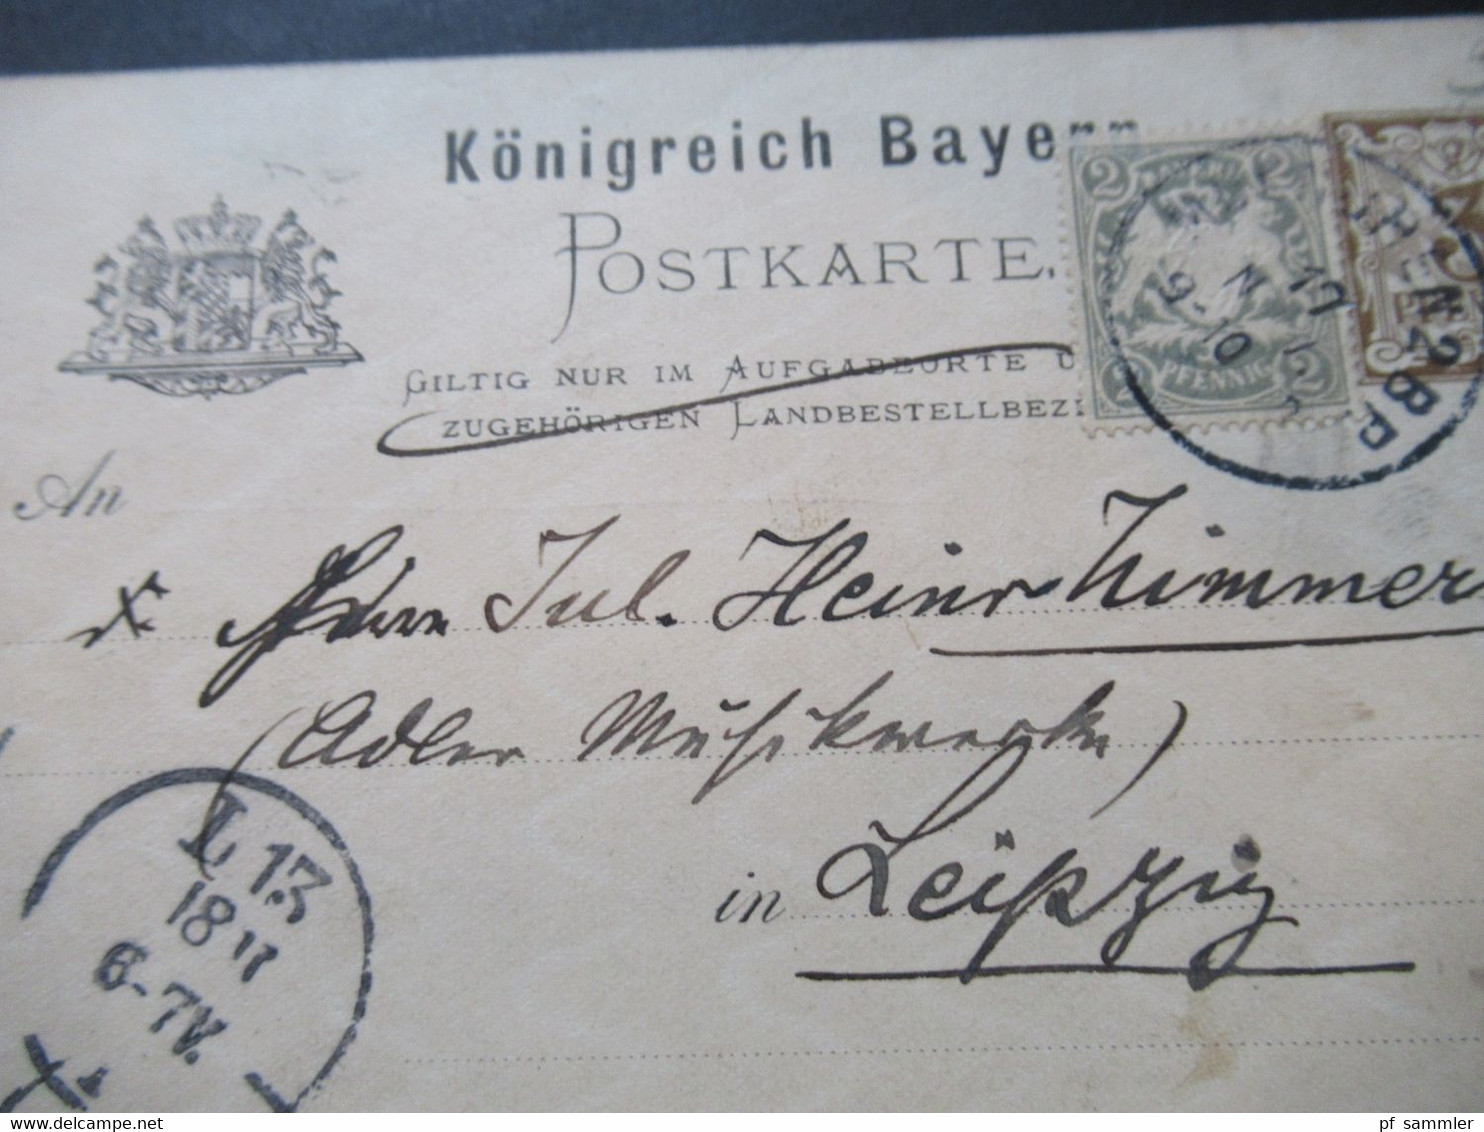 Königreich Bayern
POSTKARTE.
GILTIG NUR IM AUFGABEORTE U
ZUGEHÖRIGEN LANDBESTELLBEZI
2 2
PFENNIG
2 2
3
17
9-10
BP
An
Herrn Jul. Heinr Zimmer
(Adler Musikwerke)
in Leipzig
L 13
18 11
6-7V.
pf_sammler